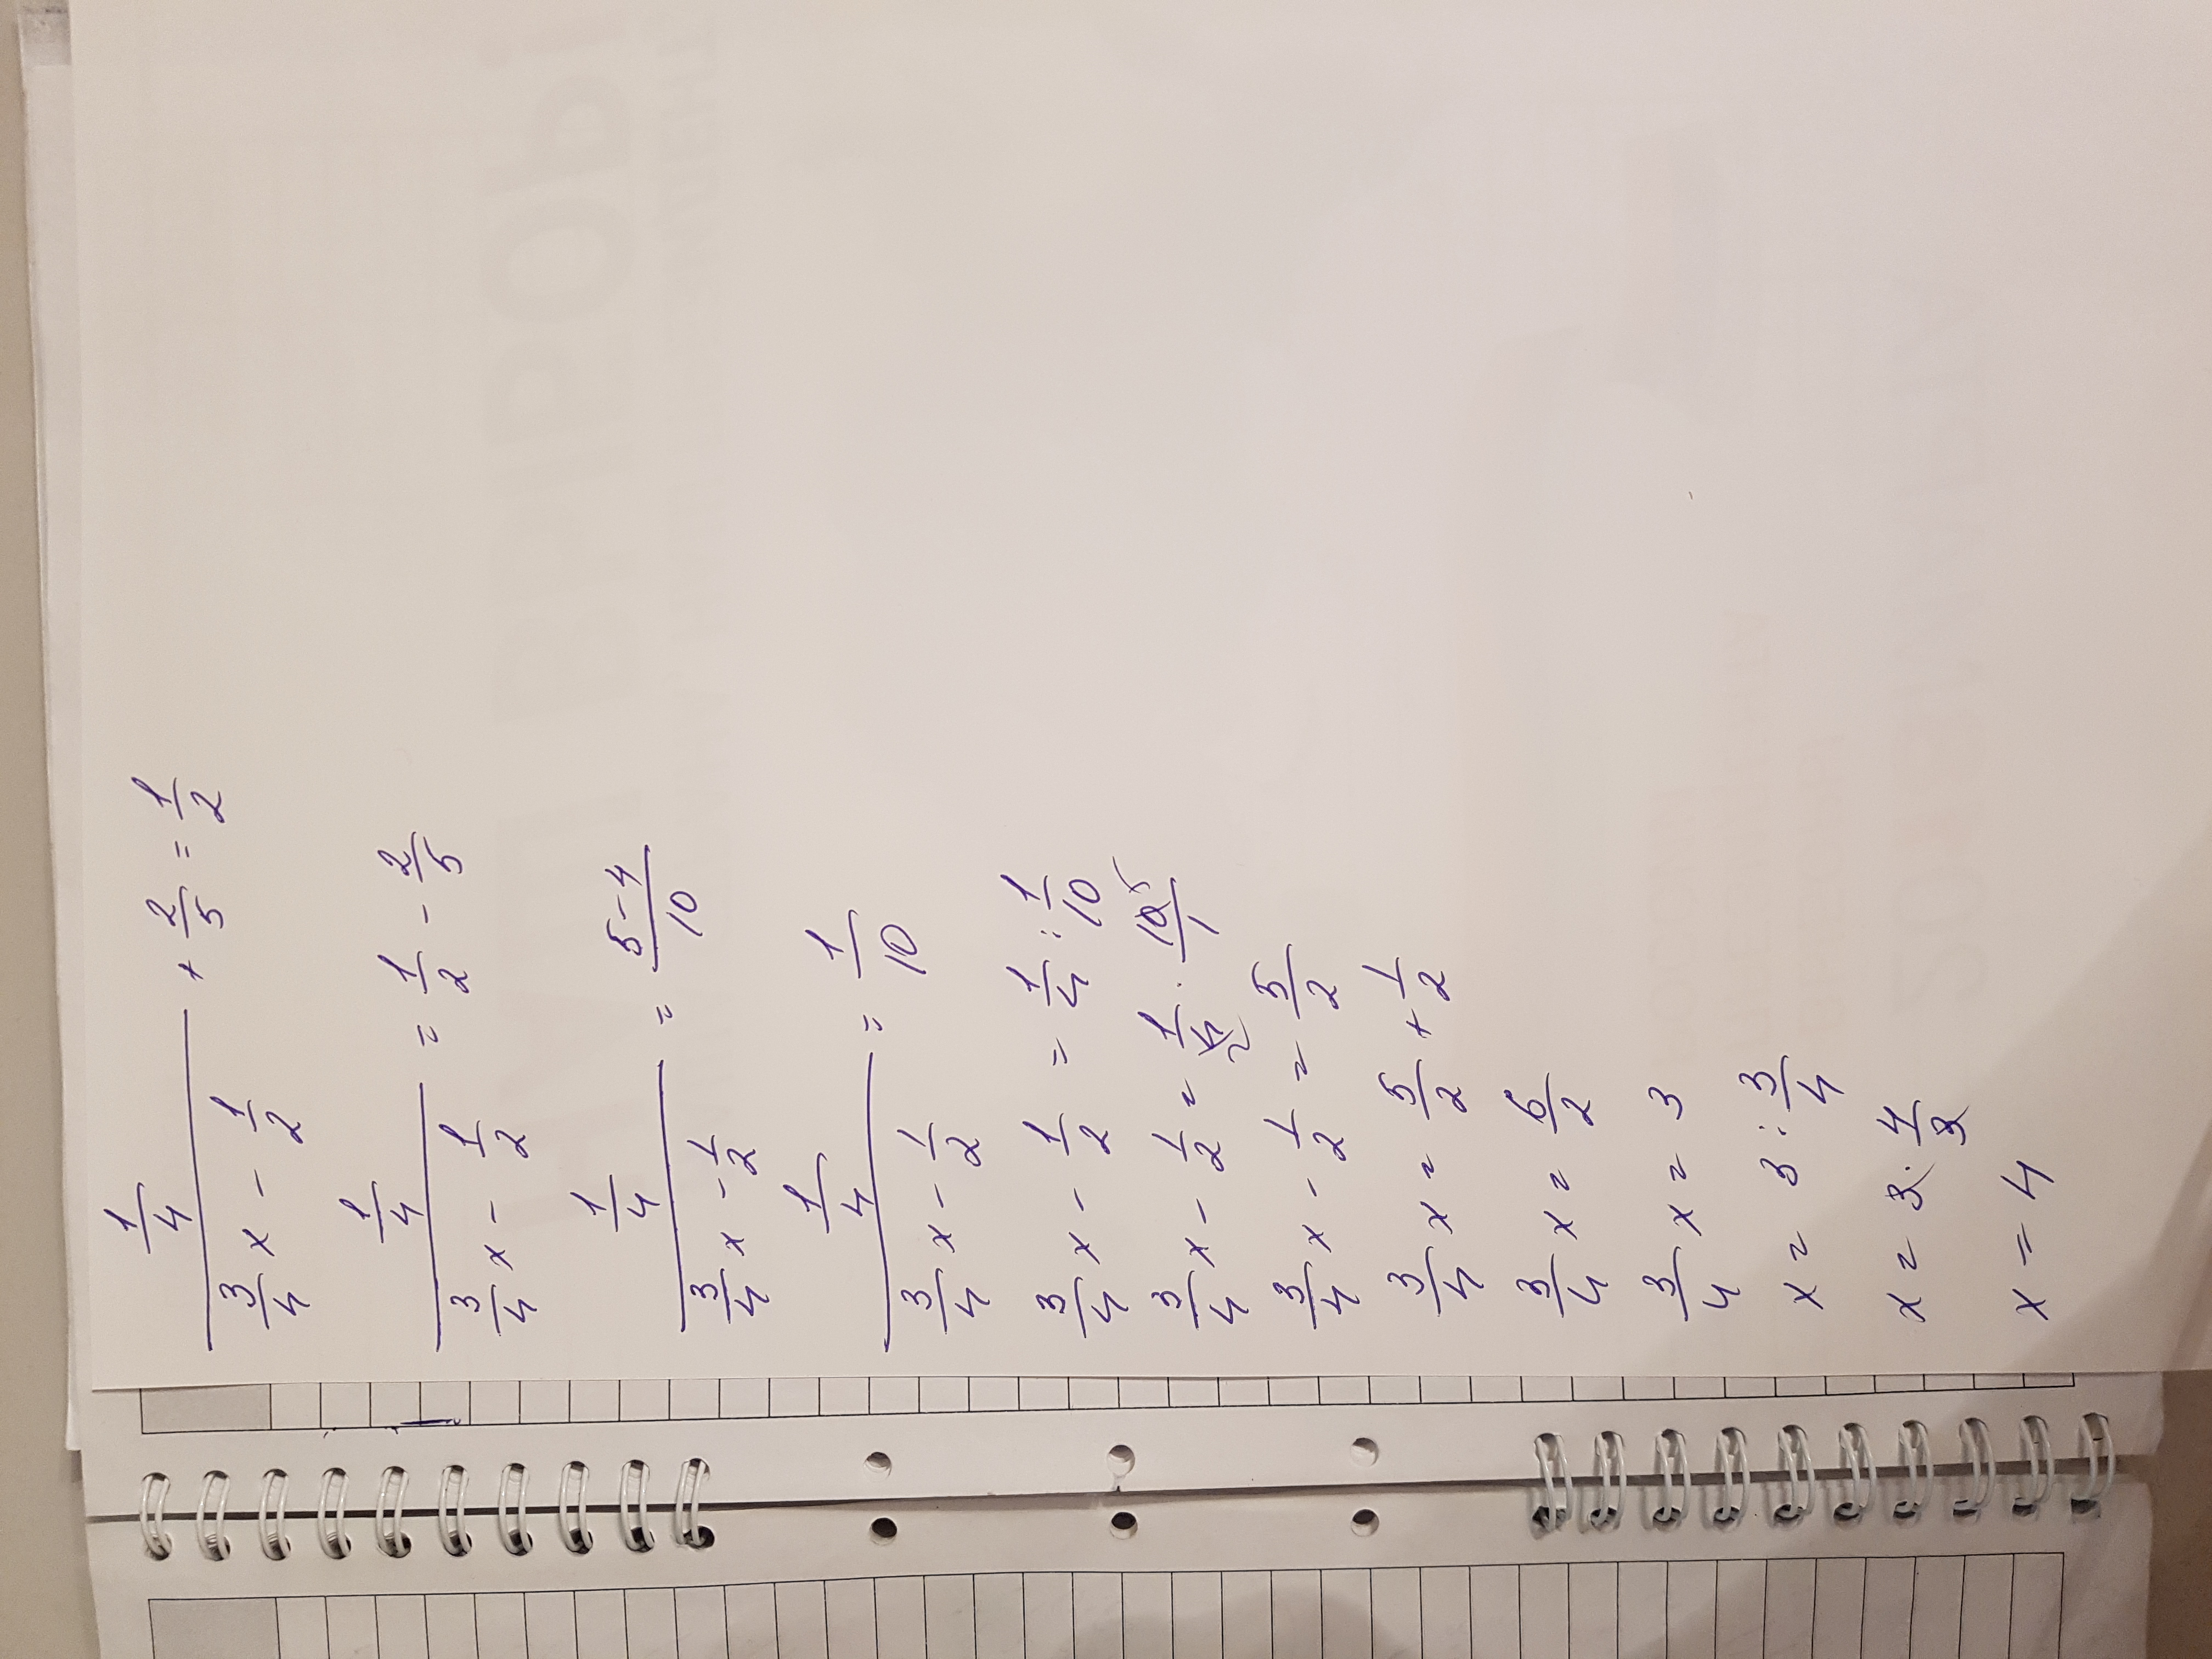 \frac{\frac{1}{4}}{\frac{3}{4}x - \frac{1}{2}} + \frac{2}{5} = \frac{1}{2}
\frac{\frac{1}{4}}{\frac{3}{4}x - \frac{1}{2}} = \frac{1}{2} - \frac{2}{5}
\frac{\frac{1}{4}}{\frac{3}{4}x - \frac{1}{2}} = \frac{5-4}{10}
\frac{\frac{1}{4}}{\frac{3}{4}x - \frac{1}{2}} = \frac{1}{10}
\frac{3}{4}x - \frac{1}{2} = \frac{1}{4} : \frac{1}{10}
\frac{3}{4}x - \frac{1}{2} = \frac{1}{\cancel{4}_{2}} \cdot \frac{\cancel{10}^{5}}{1}
\frac{3}{4}x - \frac{1}{2} = \frac{5}{2}
\frac{3}{4}x = \frac{5}{2} + \frac{1}{2}
\frac{3}{4}x = \frac{6}{2}
\frac{3}{4}x = 3
x = 3 : \frac{3}{4}
x = \cancel{3} \cdot \frac{4}{\cancel{3}}
x = 4